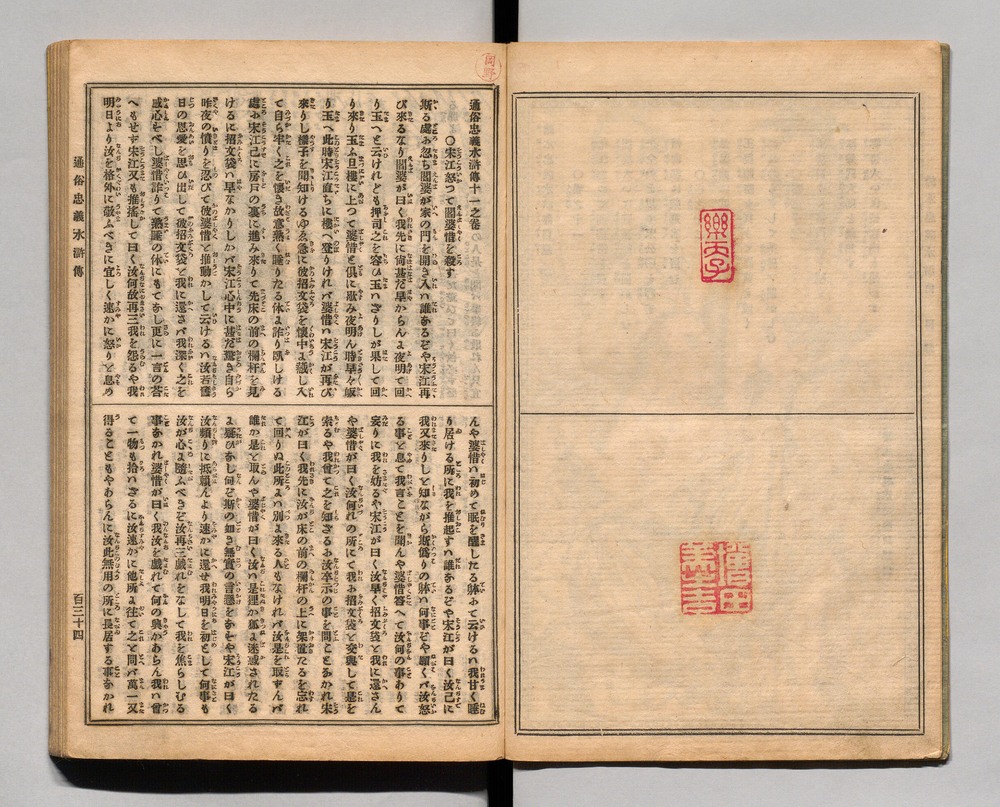 通俗忠義水滸傳十一之卷
○宋江怒つて閻婆惜を殺す
斯る處ふ忽ち閻婆が家の門を開き入ハ誰あるぞや宋江再
び來るなり閻婆が曰く我先に尙甚だ早からんよ夜明て回
り玉へと云けれども押司之を容ひ玉ハざりしが果して回
り來り玉ふ旦樓に上つて婆惜と俱に歇み夜明ん時早々皈
り玉へ此時宋江直ちに樓へ登りけれバ婆惜ハ宋江が再び
來りし樣子を聞知けるゆゑ急に彼招文袋を懷中よ藏し入
て自ら牢く之を懷き故意熟く睡りたる体よ詐り臥しける
處ふ宋江已に房戸の裏に進み來りて先床の前の欄杆を見
けるに招文袋ハ早なかりしかバ宋江心中に甚だ驚き自ら
昨夜の憤りを忍びて彼婆惜を推動かして云けるハ汝若舊
日の恩愛を思ひ出して彼招文袋を我に還さバ我深く之を
感心をべし婆惜詐りて熟睡の休にもてなし更に一言の荅
へもせず宋江又も推搖して曰く汝何故再三我を怨るや我
明日より汝を格外に敬ふべきに宜しく速かに怒りと息め
んや婆惜ハ初めて眠を醒したる躰ふて云けるハ我甘く睡
り居ける所に我を推起すハ誰あるぞや宋江が曰く汝已に
我又來りしと知ながら斯僞りの躰ハ何事ぞや願くバ汝怒
る事と息て我言ことを聞んや婆惜答へて汝何の事ありて
妄りに我を妨るや宋江が曰く汝早く招文袋と我に還さん
や婆惜が曰く汝何れの所にて我ふ招文袋と交與して是を
索るや我曾て之を知ざるふ汝卒示の事を問ことなかれ宋
江が曰く我先に汝が床の前の欄杆の上に架置たるを忘れ
て回りぬ此所よハ別よ來る人もなけれバ汝是を取ずんバ
誰か是と取んや婆惜が曰く汝ハ是狸か狐よ迷惑されたる
よ疑ひなし何ぞ斯の如き無實の言懸をなせや宋江が曰く
汝頻りに抵頼んより速かに還せ我明日を初として何事も
汝が心よ隨ふべきぞ汝再三戯れをなして我を焦らしむる
事なかれ婆惜が曰く我汝を戯れて何の興かあらん我ハ曾
て一物も拾ハざるに汝速かに他所よ往て之と問バ萬一又
得ることもやあらんに汝此無用の所に長居する事なかれ
通俗忠義水滸傳
百三十四
岡野